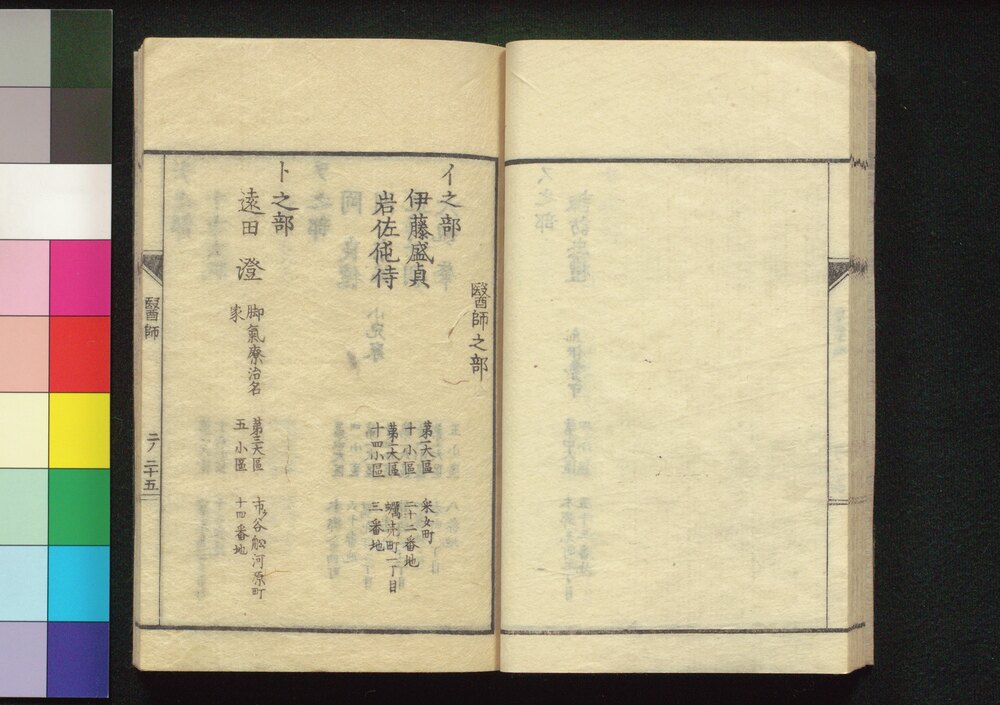 醫師之部
イ之部
伊藤盛貞
第一大區
十小區
采女町
二十二番地
岩佐侂侍
第一大區
十四小區
蠣売町一丁目
三番地
ト之部
遠田澄
脚氣療治名
家
第三大區
五小區
市谷舩河原町
十四番地
醫師
二ノ二十五